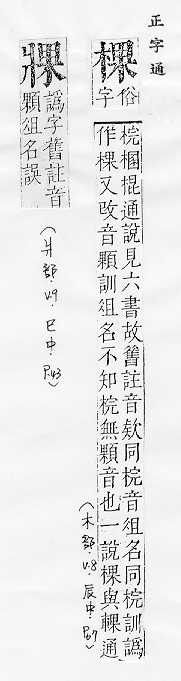 正字通
棵俗
字
梡梱棍通說見六書故舊註音欵同梡音俎名同梡訓譌
作棵又改音顆訓俎名不知梡無顆音也一說棵與輠通
(木部.V.8.辰中.P.67)
牃譌字舊註音
顆俎名誤
(爿部.V.9.巳中.P.43)